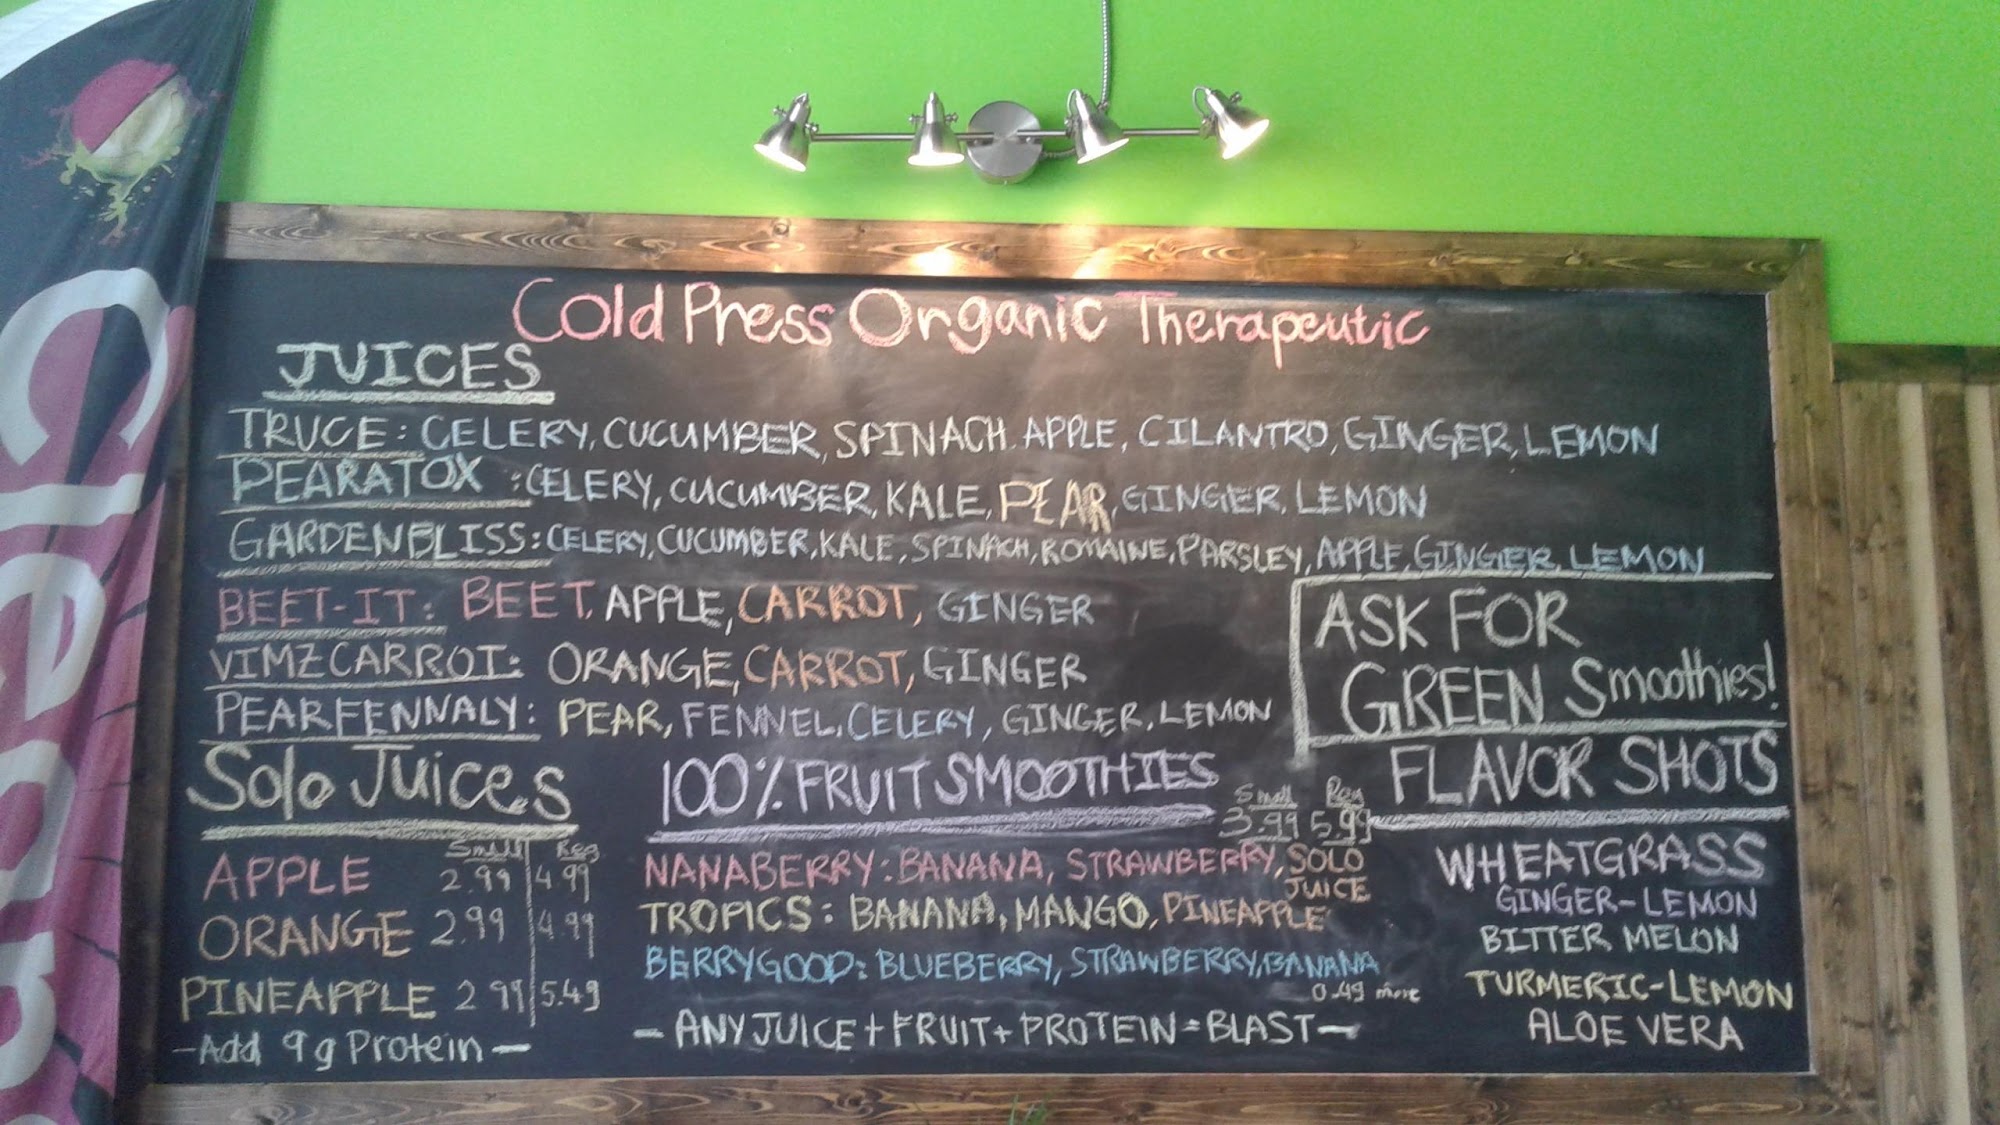 Clean
Cold Press Organic Therapeutic
JUICES
TRUCE: CELERY, CUCUMBER, SPINACH. APPLE, CILANTRO, GINGER, LEMON
PEARATOX: CELERY, CUCUMBER, KALE, PEAR, GINGER, LEMON
GARDENBLISS: CELERY, CUCUMBER, KALE, SPINACH, ROMAINE, PARSLEY, APPLE, GINGER, LEMON
BEET-IT: BEET, APPLE, CARROT, GINGER
VIMZCARROT: ORANGE, CARROT, GINGER
PEARFENNALY: PEAR, FENNEL, CELERY, GINGER, LEMON
ASK FOR
GREEN Smoothies!
Solo Juices
Small Reg
APPLE 2.99 4.99
ORANGE 2.99 4.99
PINEAPPLE 2.99 5.49
- Add 9g Protein -
100% FRUIT SMOOTHIES
Small Reg
3.99 5.99
NANABERRY: BANANA, STRAWBERRY, SOLO
JUICE
TROPICS: BANANA, MANGO, PINEAPPLE
BERRYGOOD: BLUEBERRY, STRAWBERRY, BANANA
0.49 more
- ANY JUICE + FRUIT + PROTEIN = BLAST -
FLAVOR SHOTS
WHEATGRASS
GINGER-LEMON
BITTER MELON
TURMERIC-LEMON
ALOE VERA